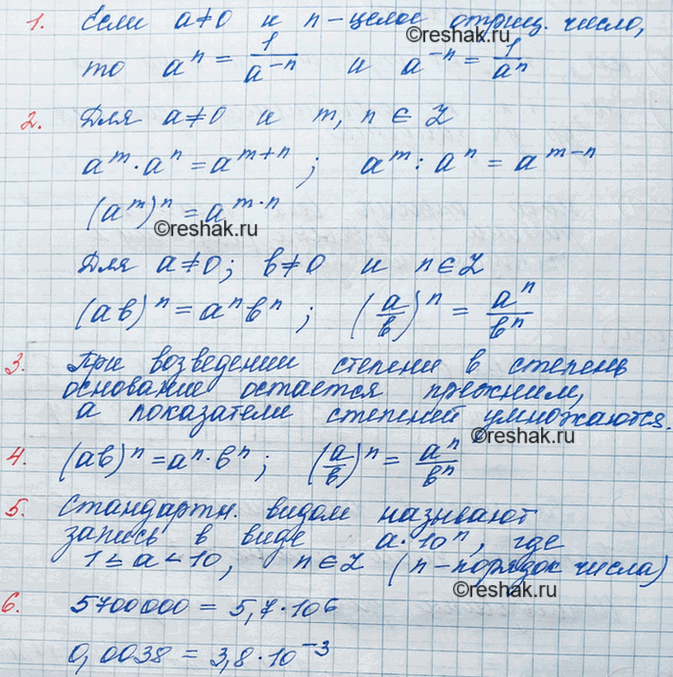 1. Если a≠0 и n – целое отриц. число,
то aⁿ = 1/a⁻ⁿ и a⁻ⁿ = 1/aⁿ
©reshak.ru
2. Для a≠0 и m, n ∈ Z
aᵐ·aⁿ = aᵐ⁺ⁿ; aᵐ : aⁿ = aᵐ⁻ⁿ
(aᵐ)ⁿ = aᵐ·ⁿ
©reshak.ru
Для a≠0; b≠0 и n∈Z
(ab)ⁿ = aⁿbⁿ; (a/b)ⁿ = aⁿ/bⁿ
3. При возведении степени в степень
основание остается прежним,
а показатели степеней умножаются.
©reshak.ru
4. (ab)ⁿ = aⁿ·bⁿ; (a/b)ⁿ = aⁿ/bⁿ
5. Стандартн. видом называют
запись в виде a·10ⁿ, где
1≤a<10, n∈Z (n – порядок числа)
©reshak.ru
6. 5700000 = 5,7·10⁶
0,0038 = 3,8·10⁻³